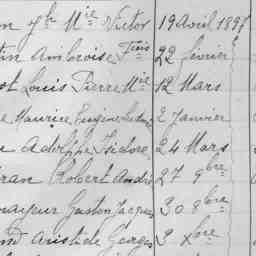 n Jh Mie Victor 19 Avril 189
tin Ambroise Frois 22 février
ot Louis Pierre Mie 12 Mars
e Maurice Eugène 2 Janvier
e Adolphe Isidore 24 Mars
ran Robert André 27 9bre
nayeur Gaston Jacques 30 8bre
nd Aristide Georges 2 Xbre